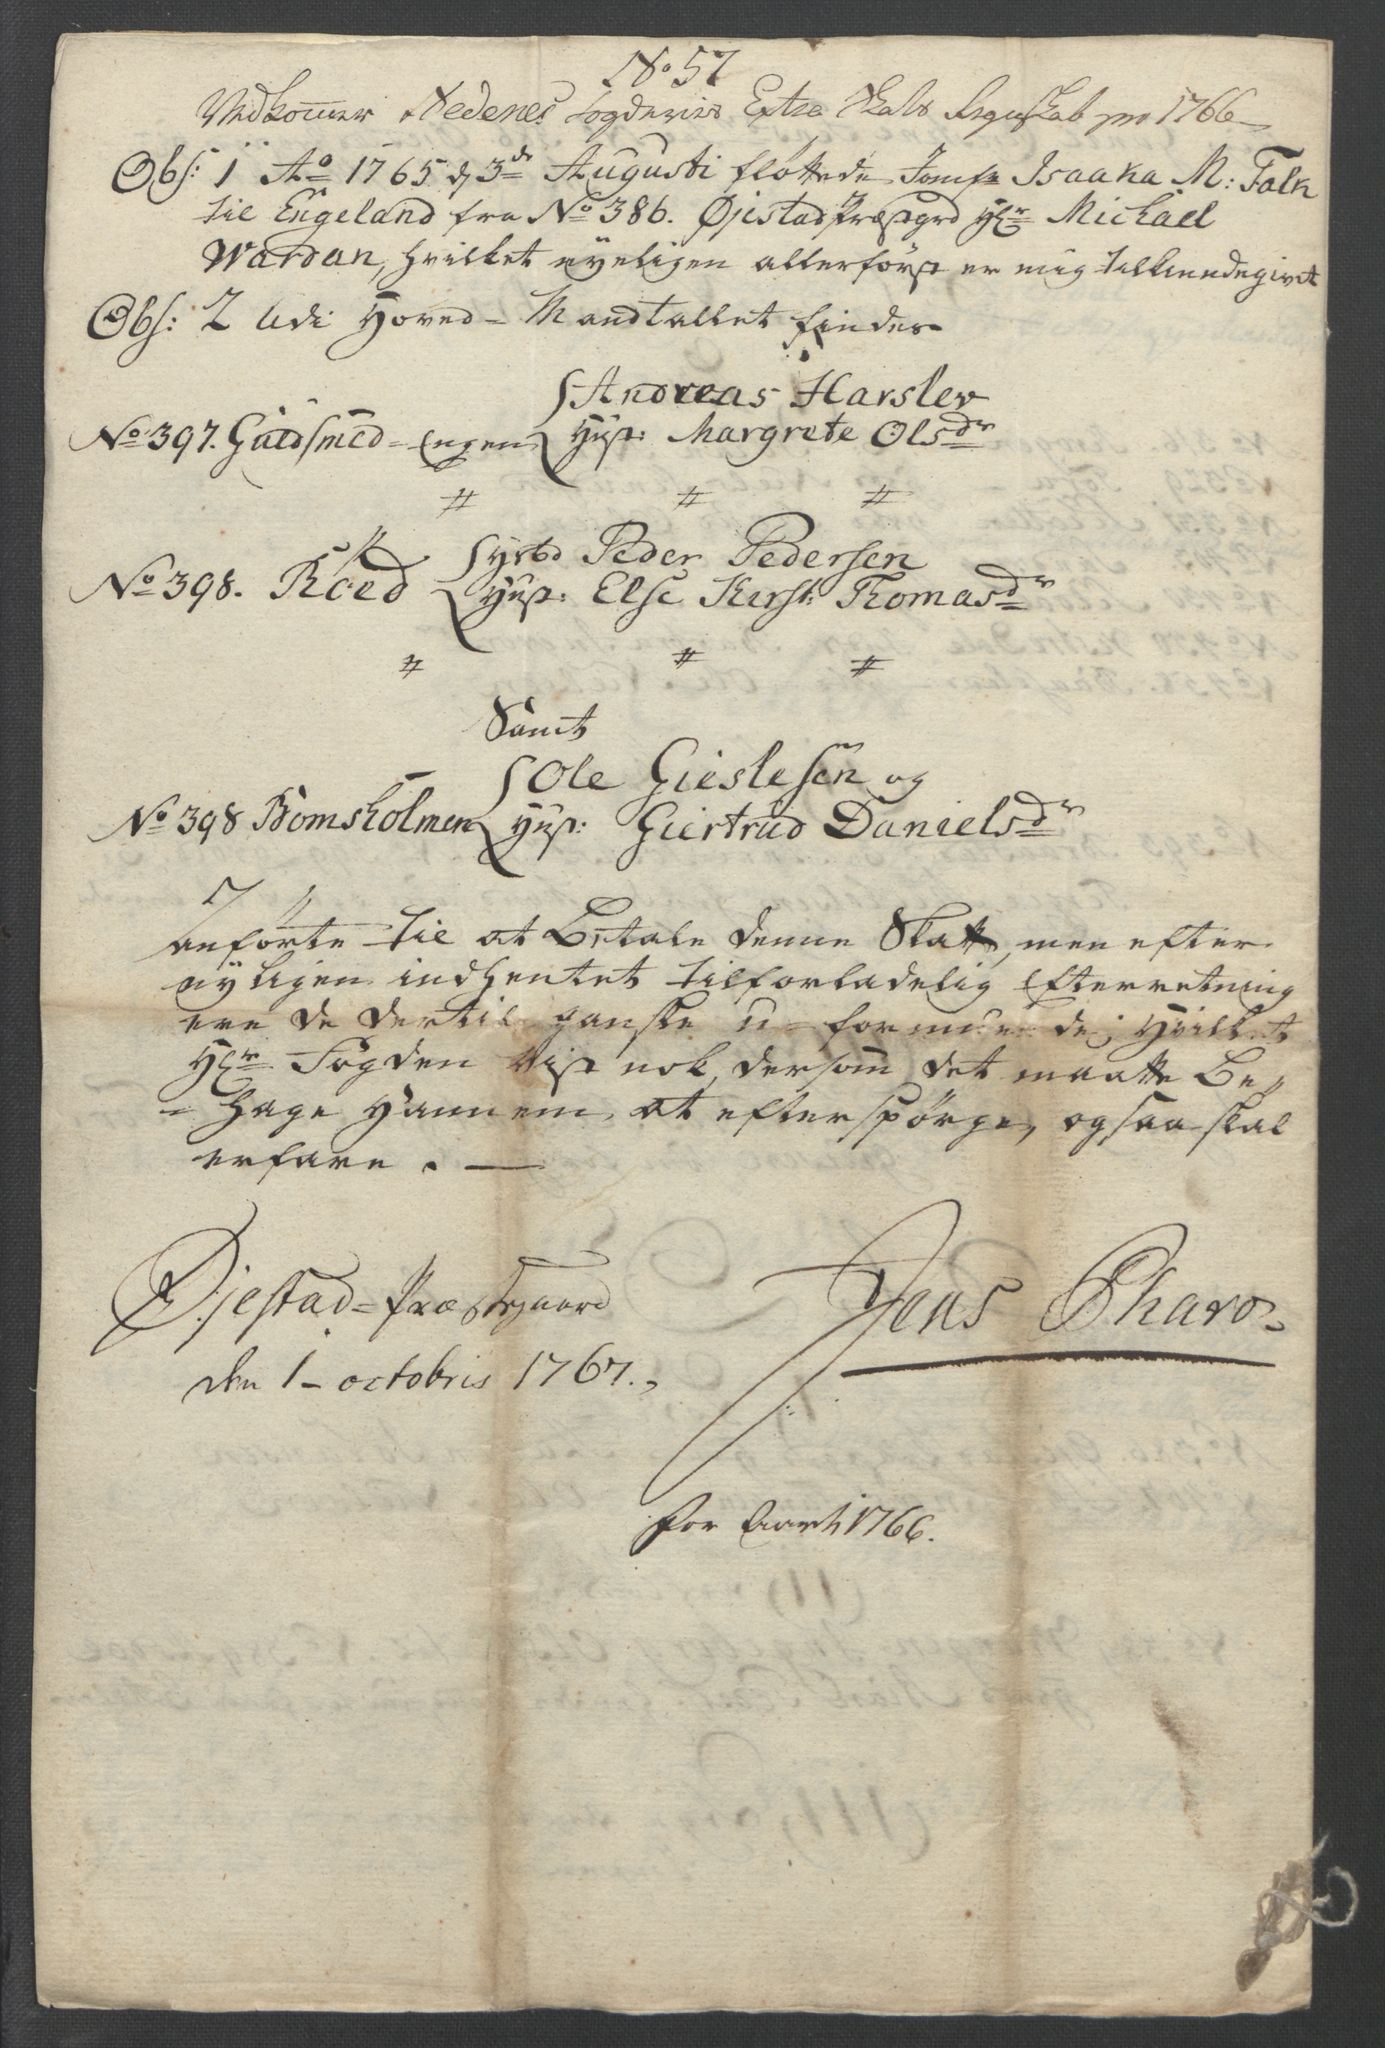 No 57
Vedkommer Nedenes Fogderies Extra Skatt Regnskab pro 1766
Obs: 1 Ao 1765 d 3de Augusti fløttede Jomfr Isaaka M: Falk
til Engeland fra No 386. Øjestad Præstgrd Hr Michael
Wardan, hvilket nyeligen allerførst er mig tilkiendegivet
Obs: 2 Udi Hoved-Mandtallet findes
Andreas Harslev
No 397. Guldsmed-Engen Hust: Margrete Olsdr
〃 〃 〃
Peder Pedersen
No 398. Roed Hust: Else Kirst: Thomasdr
〃 〃 〃
Samt
Ole Gieslesen og
No 398 Bomsholmen Hust: Giertrud Danielsdr
anførte til at Betale denne Skatt, men efter
nyligen indhentet tilforladelig Efterretning
ere de dertil ganske u-formuende; Hvilket
Hr Fogden vist nok, dersom det maatte Be-
-hage Hannem at efterspørge, ogsaa skal
erfare. —
Øjestad-Præstegaard
den 1- octobris 1767.
Jens Pharo
for Aaret 1766.